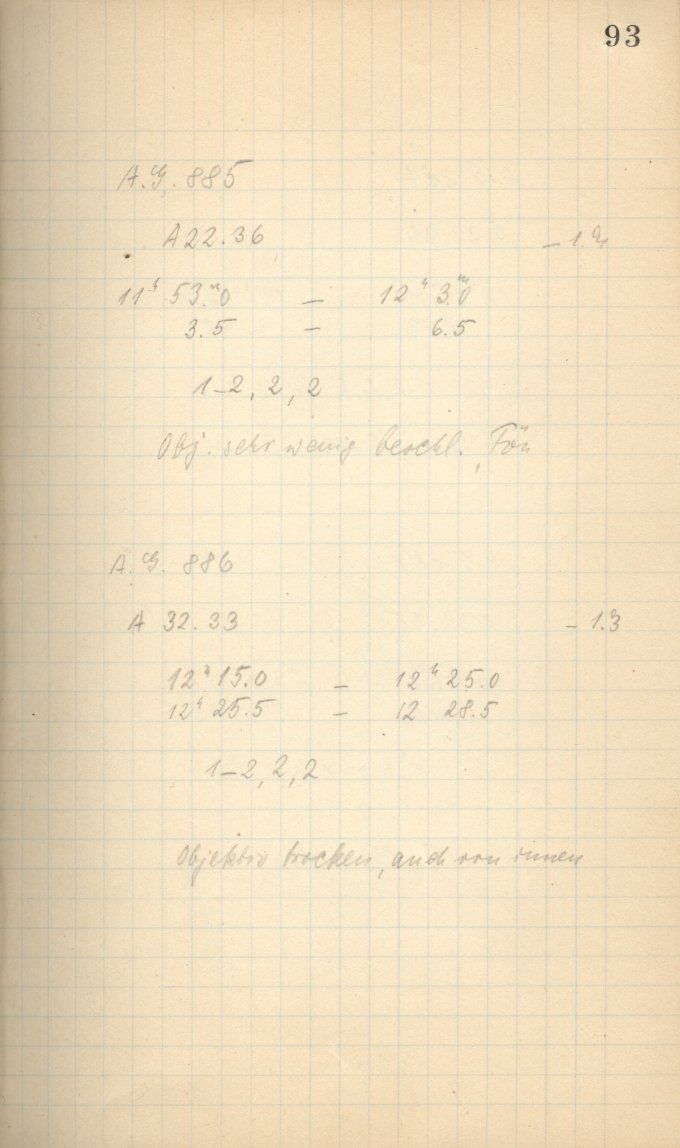 93
A.G. 885
A22.36 – 1.2
11ʰ 53.ᵐ0 – 12ʰ 3.ᵐ0
3.5 – 6.5
1–2, 2, 2
Obj. sehr wenig beschl., Fön
A.G. 886
A 32.33 – 1.3
12ʰ 15.0 – 12ʰ 25.0
12ʰ 25.5 – 12 28.5
1–2, 2, 2
Objektiv trocken, auch von innen